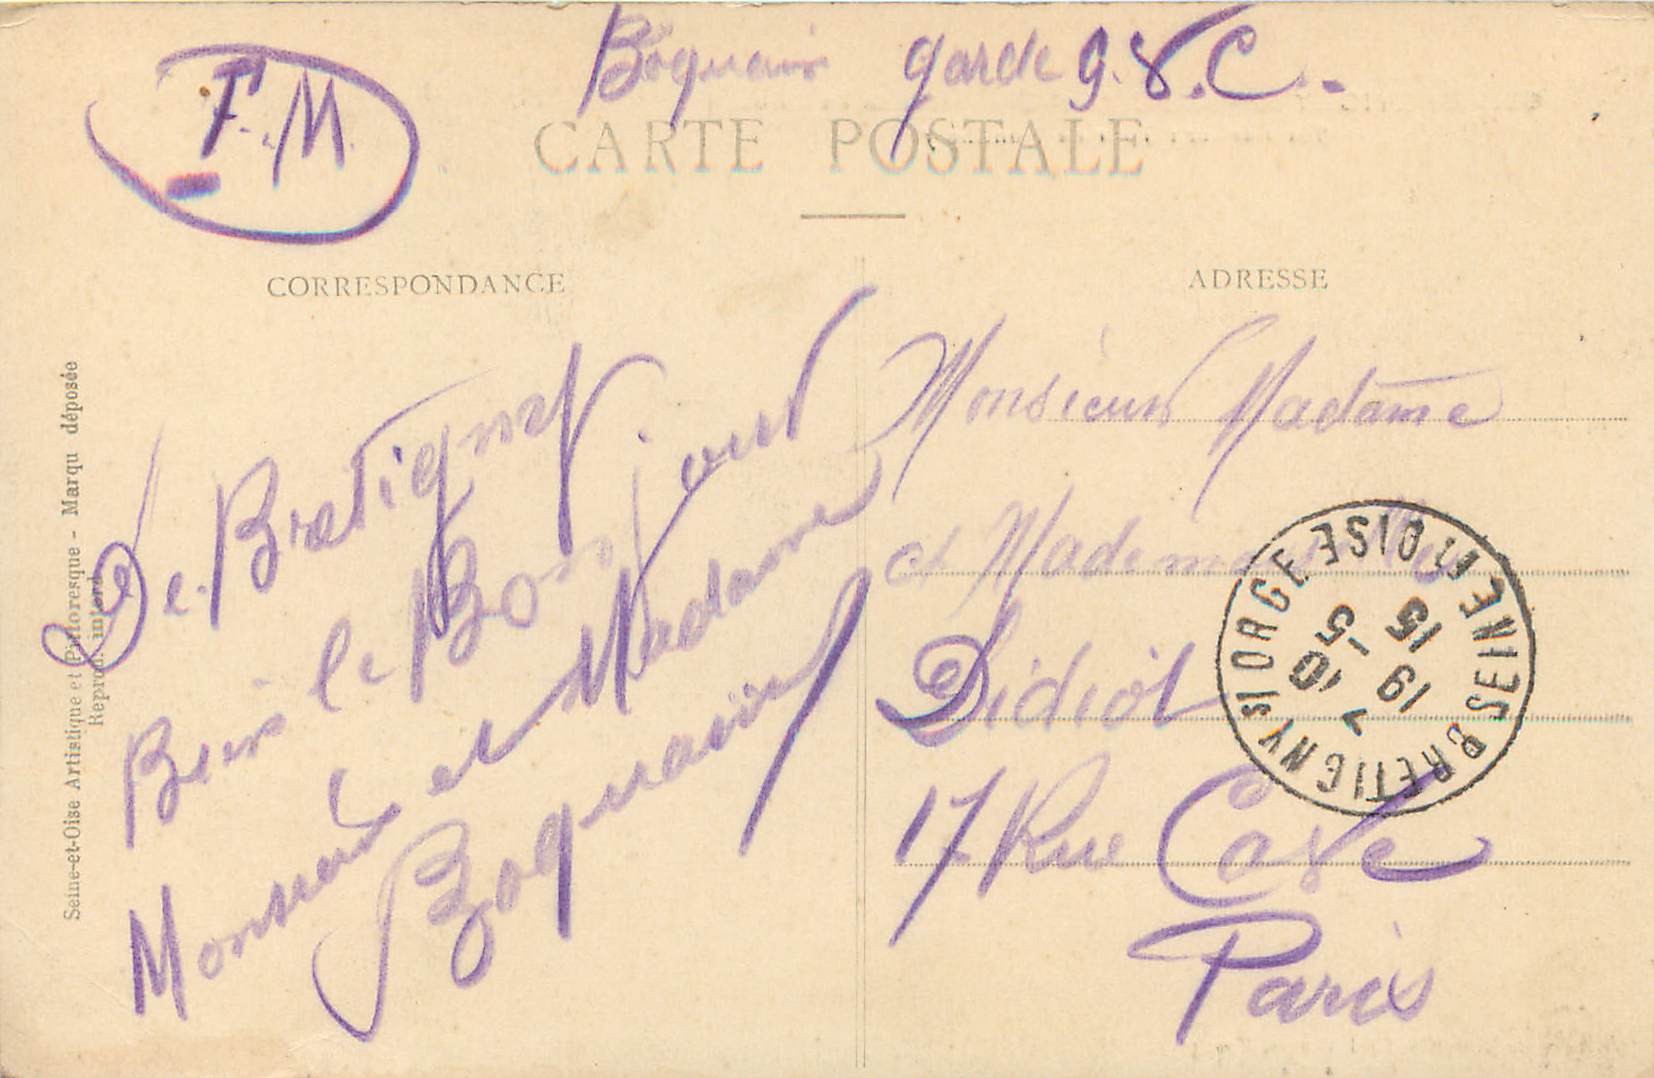 F. M.
Boquain garde G.V.C.
CARTE POSTALE
CORRESPONDANCE
ADRESSE
De Bretigny
Bein le Bonjour
Monsieur et Madame
Boquain
Monsieur Madame
et Mademoiselle
Didiot
17 Rue Cave
Paris
BRETIGNY S/ ORGE SEINE-ET-OISE
7
10 -5
19 15
Seine-et-Oise Artistique et Pittoresque - Marqu déposée
Reprod. interd